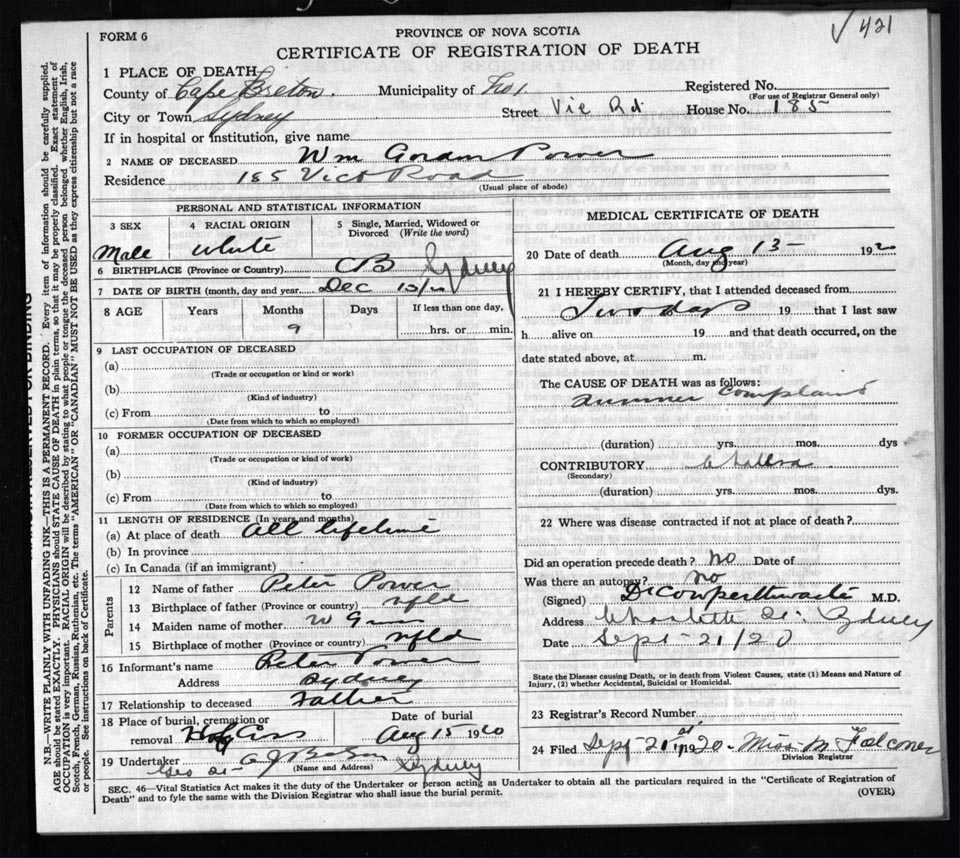 ✓ 421
FORM 6
PROVINCE OF NOVA SCOTIA
CERTIFICATE OF REGISTRATION OF DEATH
1 PLACE OF DEATH
County of Cape Breton. Municipality of Registered No.
(For use of Registrar General only)
City or Town Sydney Street Vic Rd House No. 185
If in hospital or institution, give name
2 NAME OF DECEASED Wm Goram Power
Residence 185 Vict Road
(Usual place of abode)
PERSONAL AND STATISTICAL INFORMATION
3 SEX 4 RACIAL ORIGIN 5 Single, Married, Widowed or Divorced (Write the word)
Male white
6 BIRTHPLACE (Province or Country) CB Sydney
7 DATE OF BIRTH (month, day and year) Dec
8 AGE Years Months Days If less than one day,
9 hrs. or min.
9 LAST OCCUPATION OF DECEASED
(a)
(Trade or occupation or kind or work)
(b)
(Kind of industry)
(c) From to
(Date from which to which so employed)
10 FORMER OCCUPATION OF DECEASED
(a)
(Trade or occupation or kind or work)
(b)
(Kind of industry)
(c) From to
(Date from which to which so employed)
11 LENGTH OF RESIDENCE (In years and months)
(a) At place of death All lifetime
(b) In province
(c) In Canada (if an immigrant)
Parents
12 Name of father Peter Power
13 Birthplace of father (Province or country) nfld
14 Maiden name of mother W
15 Birthplace of mother (Province or country) nfld
16 Informant's name Peter Power
Address Sydney
17 Relationship to deceased Father
18 Place of burial, cremation or removal Holy Cross Date of burial Aug 15 1920
19 Undertaker
(Name and Address) Sydney
MEDICAL CERTIFICATE OF DEATH
20 Date of death Aug 13 1920
(Month, day and year)
21 I HEREBY CERTIFY, that I attended deceased from
Two days 19 that I last saw
h alive on 19 and that death occurred, on the
date stated above, at m.
The CAUSE OF DEATH was as follows:
Summer Complaint
(duration) yrs. mos. dys
CONTRIBUTORY
(Secondary)
(duration) yrs. mos. dys.
22 Where was disease contracted if not at place of death?
Did an operation precede death? no Date of
Was there an autopsy? no
(Signed) Dr Cowperthwaite M.D.
Address Charlotte St. Sydney
Date Sept 21/20
State the Disease causing Death, or in death from Violent Causes, state (1) Means and Nature of Injury, (2) whether Accidental, Suicidal or Homicidal.
23 Registrar's Record Number
24 Filed Sept 21st 1920. Miss M Falconer
Division Registrar
SEC. 46—Vital Statistics Act makes it the duty of the Undertaker or person acting as Undertaker to obtain all the particulars required in the "Certificate of Registration of
Death" and to fyle the same with the Division Registrar who shall issue the burial permit.
(OVER)
N.B.—WRITE PLAINLY WITH UNFADING INK—THIS IS A PERMANENT RECORD. Every item of information should be carefully supplied.
AGE should be stated EXACTLY. PHYSICIANS should STATE CAUSE OF DEATH in plain terms, so that it may be properly classified. Exact statement of
OCCUPATION is very important. RACIAL ORIGIN will be described by stating to what people or tongue the deceased person belonged whether English, Irish,
Scotch, French, German, Russian, Ruthenian, etc. The terms "AMERICAN" OR "CANADIAN" MUST NOT BE USED as they express citizenship but not a race
or people. See instructions on back of Certificate.